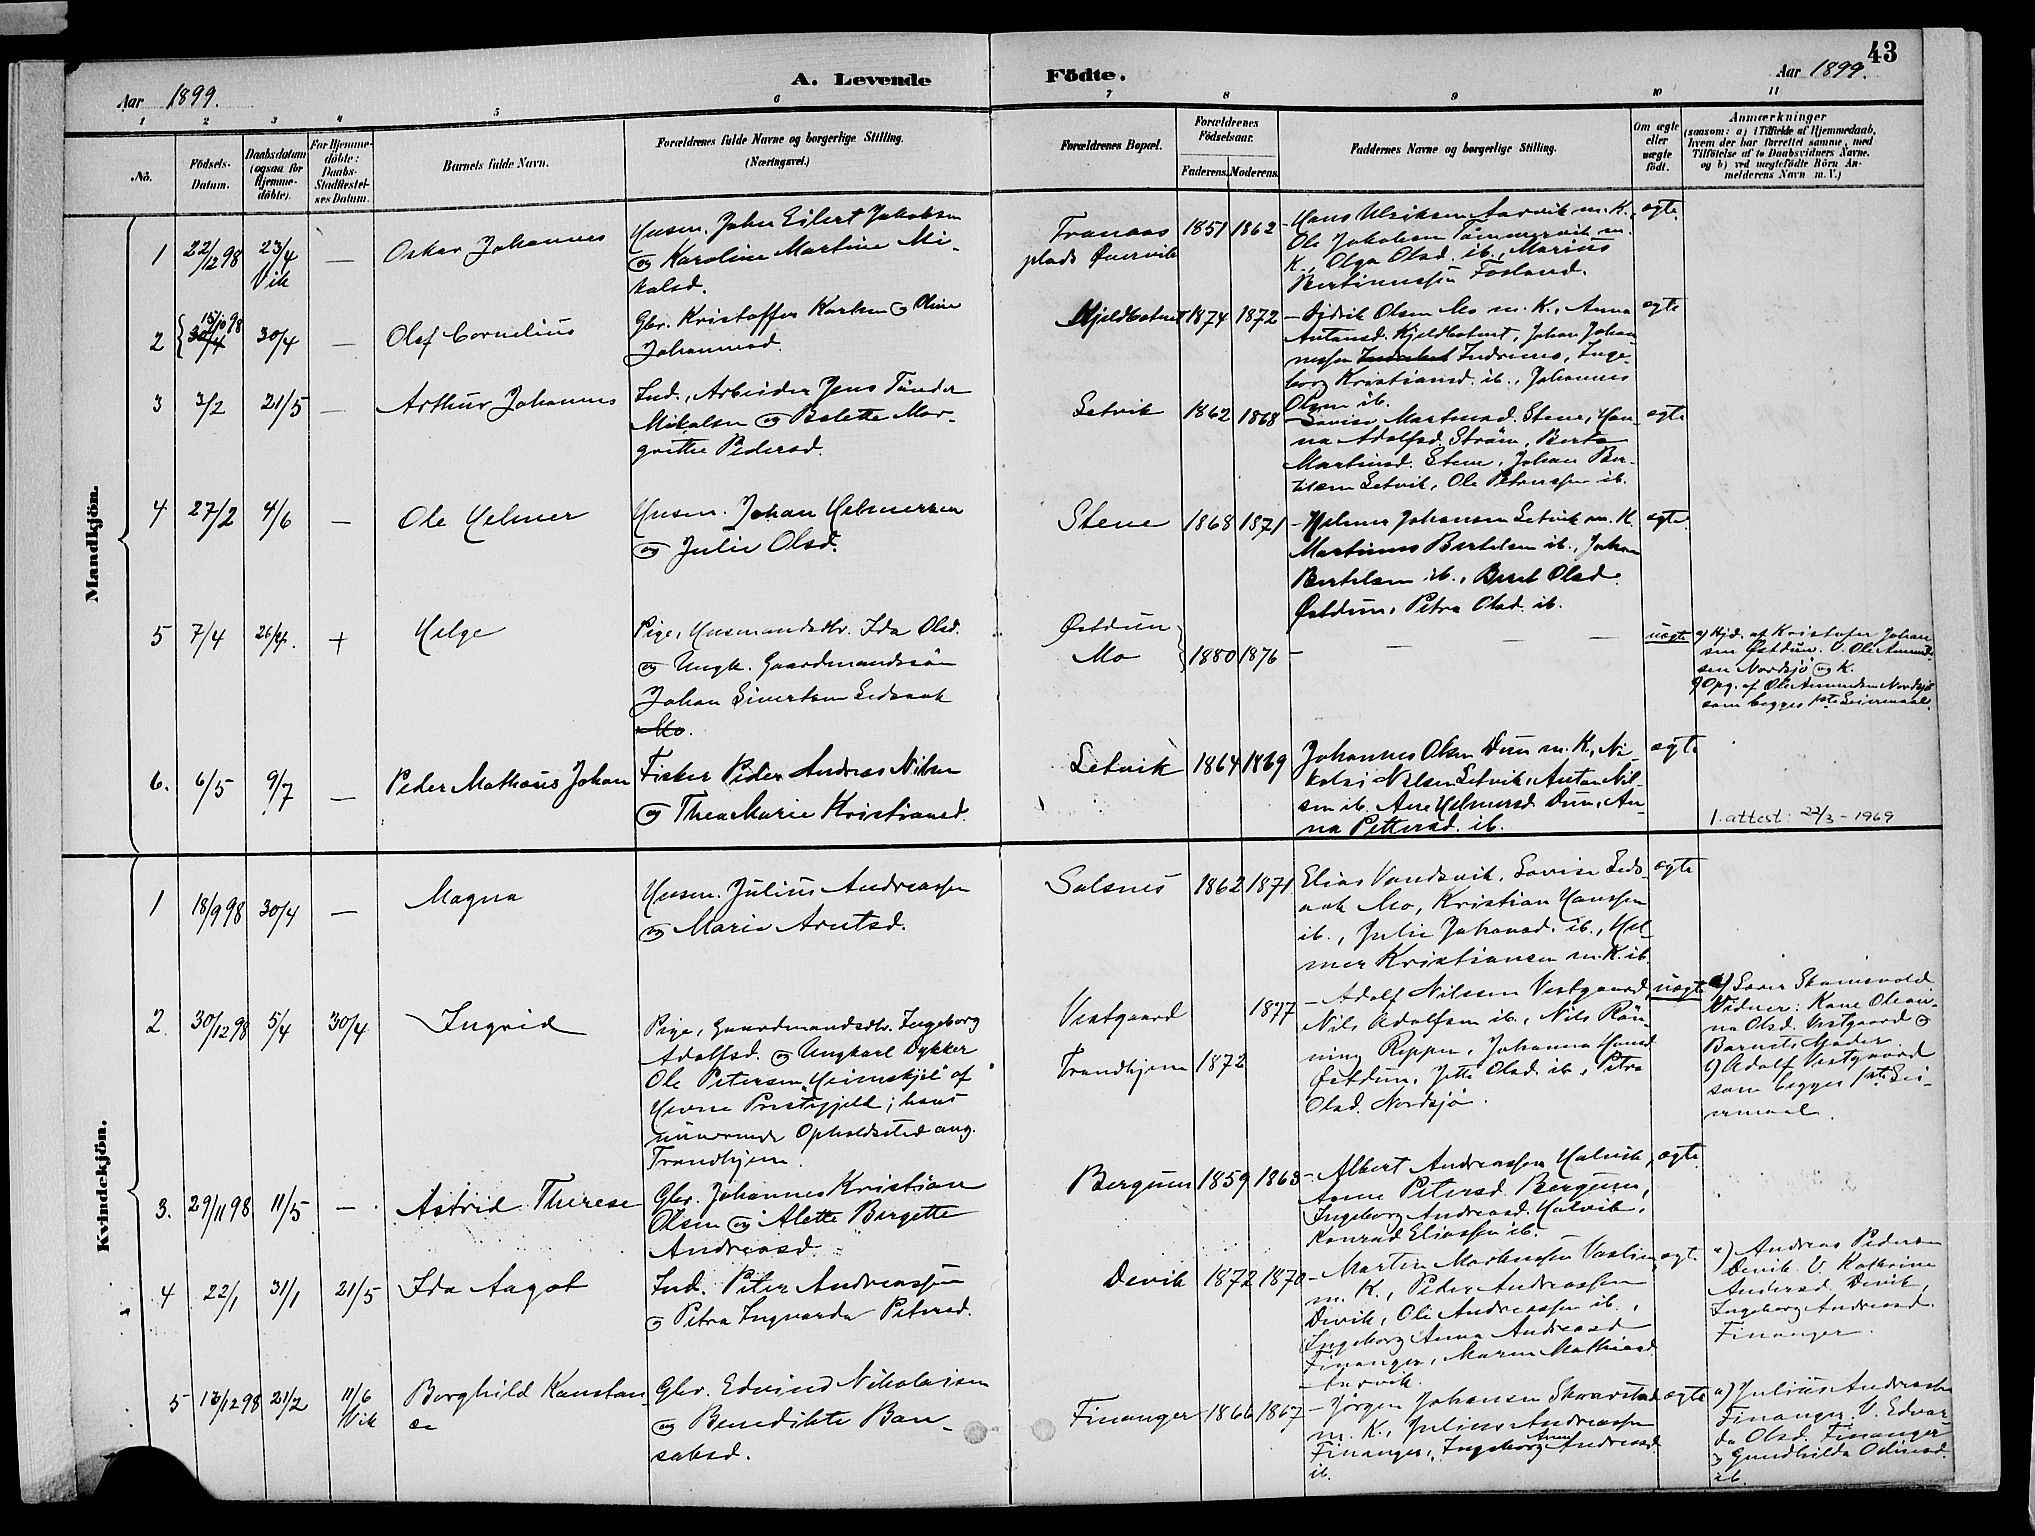 43
A. Levende Födte.
Aar 1899.
Aar 1899.
1 2 3 4 5 6 7 8 9 10 11
No.
Födsels-Datum.
Daabsdatum (ogsaa for Hjemme-döbte).
For Hjemme-döbte: Daabs-Stadfæstel-ses Datum.
Barnets fulde Navn.
Forældrenes fulde Navne og borgerlige Stilling. (Næringsvei.)
Forældrenes Bopæl.
Forældrenes Födselsaar.
Faderens. Moderens.
Faddernes Navne og borgerlige Stilling.
Om ægte eller uægte födt.
Anmærkninger
(saasom: a) i Tilfælde af Hjemmedaab, hvem der har forrettet samme, med Tilföielse af to Daabsvidners Navne, og b) ved uægtefödte Börn Anmelderens Navn m. V.)
Mandkjön.
1 22/12 98 23/4 Vik — Oskar Johannes
Husm. Johan Eilert Jakobsen
og Karoline Martine Mi-
kalsd.
Tranaas
plads Övervik
1851 1862
Hans Ulriksen Aarvik m. K.,
Ole Jakobsen Tömmervik m.
K., Olga Olsd. ib., Marius
Bertinussen Fosland.
ægte
2 15/10 98 30/4 30/4 — Olaf Cornelius
Gbr. Kristoffer Karlsen og Oline
Johannesd.
Kjeldbotnet 1874 1872
Didrik Olsen Mo m. K., Anna
Antonsd. Kjeldbotnet, Johan Johan
nessen Indrenes, Inge-
borg Kristiansd. ib., Johannes
Olsen ib.
ægte
3 3/2 21/5 — Arthur Johannes
Ind., Arbeider Jens Tönder
Mikalsen og Bolette Mar-
grithe Pedersd.
Setvik 1862 1868
Lovise Martinsd. Stene, Han-
na Adolfsd. Ström, Berta
Martinsd. Stene, Johan Ber-
telsen Setvik, Ole Petersen ib.
ægte
4 27/2 4/6 — Ole Helmer
Husm. Johan Helmersen
og Julie Olsd.
Stene 1868 1871
Helmer Johansen Setvik m. K.
Martinus Bertelsen ib., Johan
Bertelsen ib., Beret Olsd.
Østdun, Petra Olsd. ib.
ægte
5 7/4 26/4. + Helge
Pige, Husmandsdtr. Ida Olsd.
og Ungk. Gaardmandssön
Johan Sivertsen Sedsaak
Mo.
Østdun
Mo 1880 1876
— — —
uægte
a) Hjd. af Kristofer Johan
sen Østdun. V. Ole Amund-
sen Nordsjö og K.
b) Opg. af Ole Amundsen Nordsjö
som begges 1ste Leiermaal.
6. 6/5 9/7 — Peder Mathæus Johan
Fisker Peder Andreas Nilsen
og Thea Marie Kristiansd.
Setvik 1864 1869
Johannes Olsen Dun m. K., Ni-
kolai Nilsen Setvik, Anton Nil-
sen ib. Ane Helmersd. Dun, An-
na Pettersd. ib.
ægte
1. attest: 22/3 - 1969
Kvindekjön.
1 18/9 98 30/4 — Magna
Husm. Julius Andreassen
og Marie Arntsd.
Salsnes 1862 1871
Elias Vandsvik, Lovise Seds-
aak Mo, Kristian Hanssen
ib., Julie Johansd. ib., Hel-
mer Kristiansen m. K. ib.
ægte
2. 30/12 98 5/4 30/4 Ingrid
Pige, Gaardmandsdtr. Ingeborg
Adolfsd. og Ungkarl Dykker
Ole Petersen "Heimskjel" af
Hevne Prestegjeld; hans
nuværende Opholdssted ang.
Trondhjem.
Vestgaard 1877
Trondhjem 1872
Adolf Nilssen Vestgaard,
Nils Adolfsen ib., Nils Rön-
ning Reppen, Johanna Hansd.
Østdun, Jette Olsd. ib., Petra
Olsd. Nordsjö.
uægte
a) Lærer Skomsvold
Vidner: Kone Olean-
na Olsd. Vestgaard og
Barnets Moder
b) Adolf Vestgaard
som begges 1ste Lei-
ermaal.
3. 29/11 98 11/5 — Astrid Therese
Gbr. Johannes Kristian
Olsen og Alette Bergette
Andreasd.
Berguen 1859 1863
Albert Andreassen Halvik,
Anne Petersd. Berguen,
Ingeborg Andreasd. Halvik,
Konrad Eliassen ib.
ægte
4 22/1 31/1 21/5 Ida Aagot
Ind. Peter Andreassen
og Petra Ingvarda Petersd.
Devik 1872 1870
Martin Martinussen Vaslien
m. K., Peder Andreassen
Devik, Ole Andreassen ib.,
Ingeborg Anna Andreasd
Finanger, Maren Mathiasd.
ægte
a) Andreas Pedersen
Devik. V. Kathrine
Andersd. Devik,
Ingeborg Andreasd.
Finanger.
5 13/12 98 21/2 11/6 Vik Borghild Konstan-
se
Gbr. Edvind Nikolaisen
og Benedikte Bar-
sabsd.
Finanger 1866 1867
Jörgen Johansen Skvarstad
m. K., Julius Andreassen
Finanger, Ingeborg Anna Andreasd
ib.
ægte
a) Julius Andreassen
Finanger. V. Edvar-
da Olsd. Finanger
og Gundhilda Odinsd.
ib.